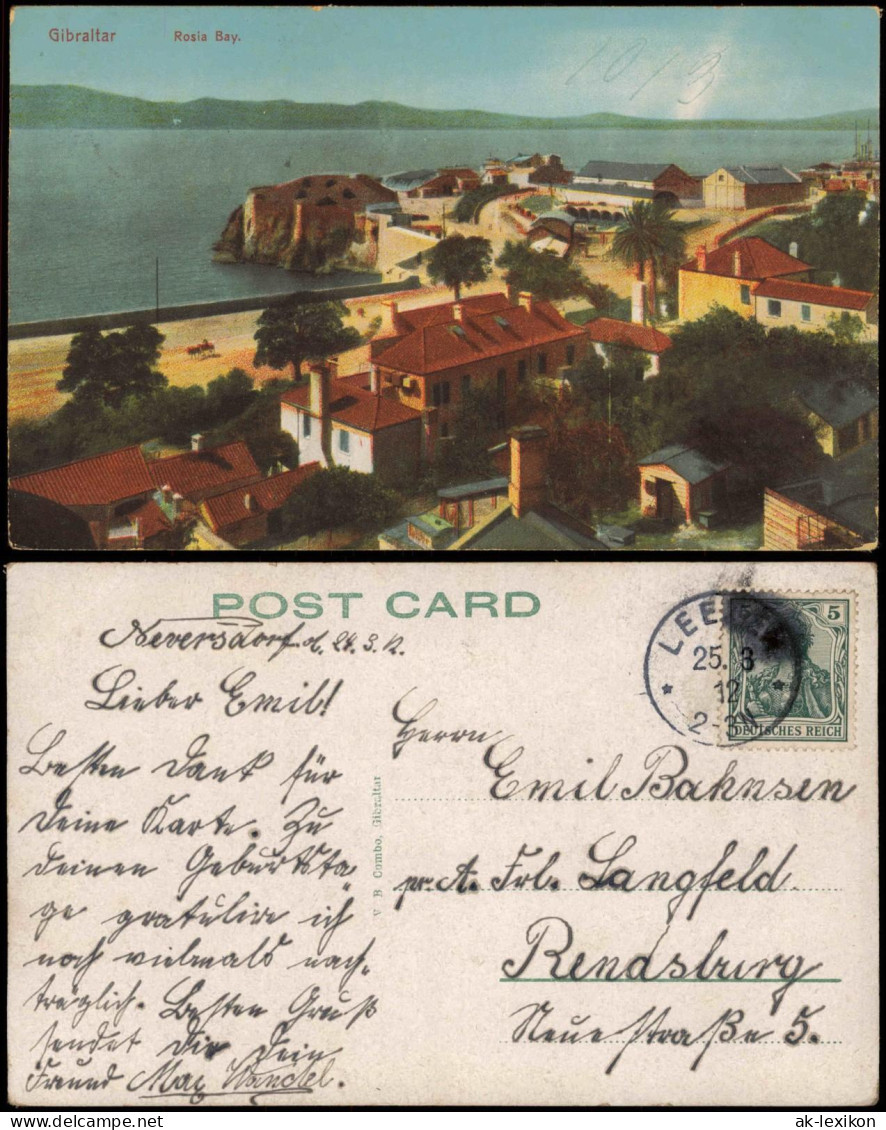 Gibraltar Rosia Bay.
1013
POST CARD
Neversdorf d. 24.3.12.
Lieber Emil!
Besten Dank für
Deine Karte. Zu
Deinen Geburtsta„
ge gratulire ich
noch vielmals nach„
träglich. Besten Gruß
sendet Dir Dein
Freund Max Wandel.
V. B. Cumbo, Gibraltar
25. 3
12
DEUTSCHES REICH
5
Herrn
Emil Bahnsen
pr. A. Frl. Langfeld.
Rendsburg
Neue Straße 5.
ak-lexikon.com